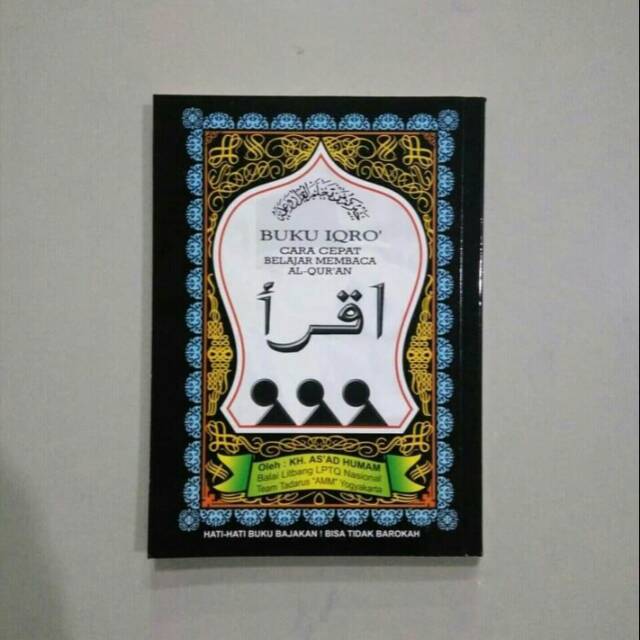 BUKU IQRO'
CARA CEPAT
BELAJAR MEMBACA
AL-QUR'AN
اقرأ
Oleh : KH. AS'AD HUMAM
Balai Litbang LPTQ Nasional
Team Tadarus "AMM" Yogyakarta
HATI-HATI BUKU BAJAKAN ! BISA TIDAK BAROKAH